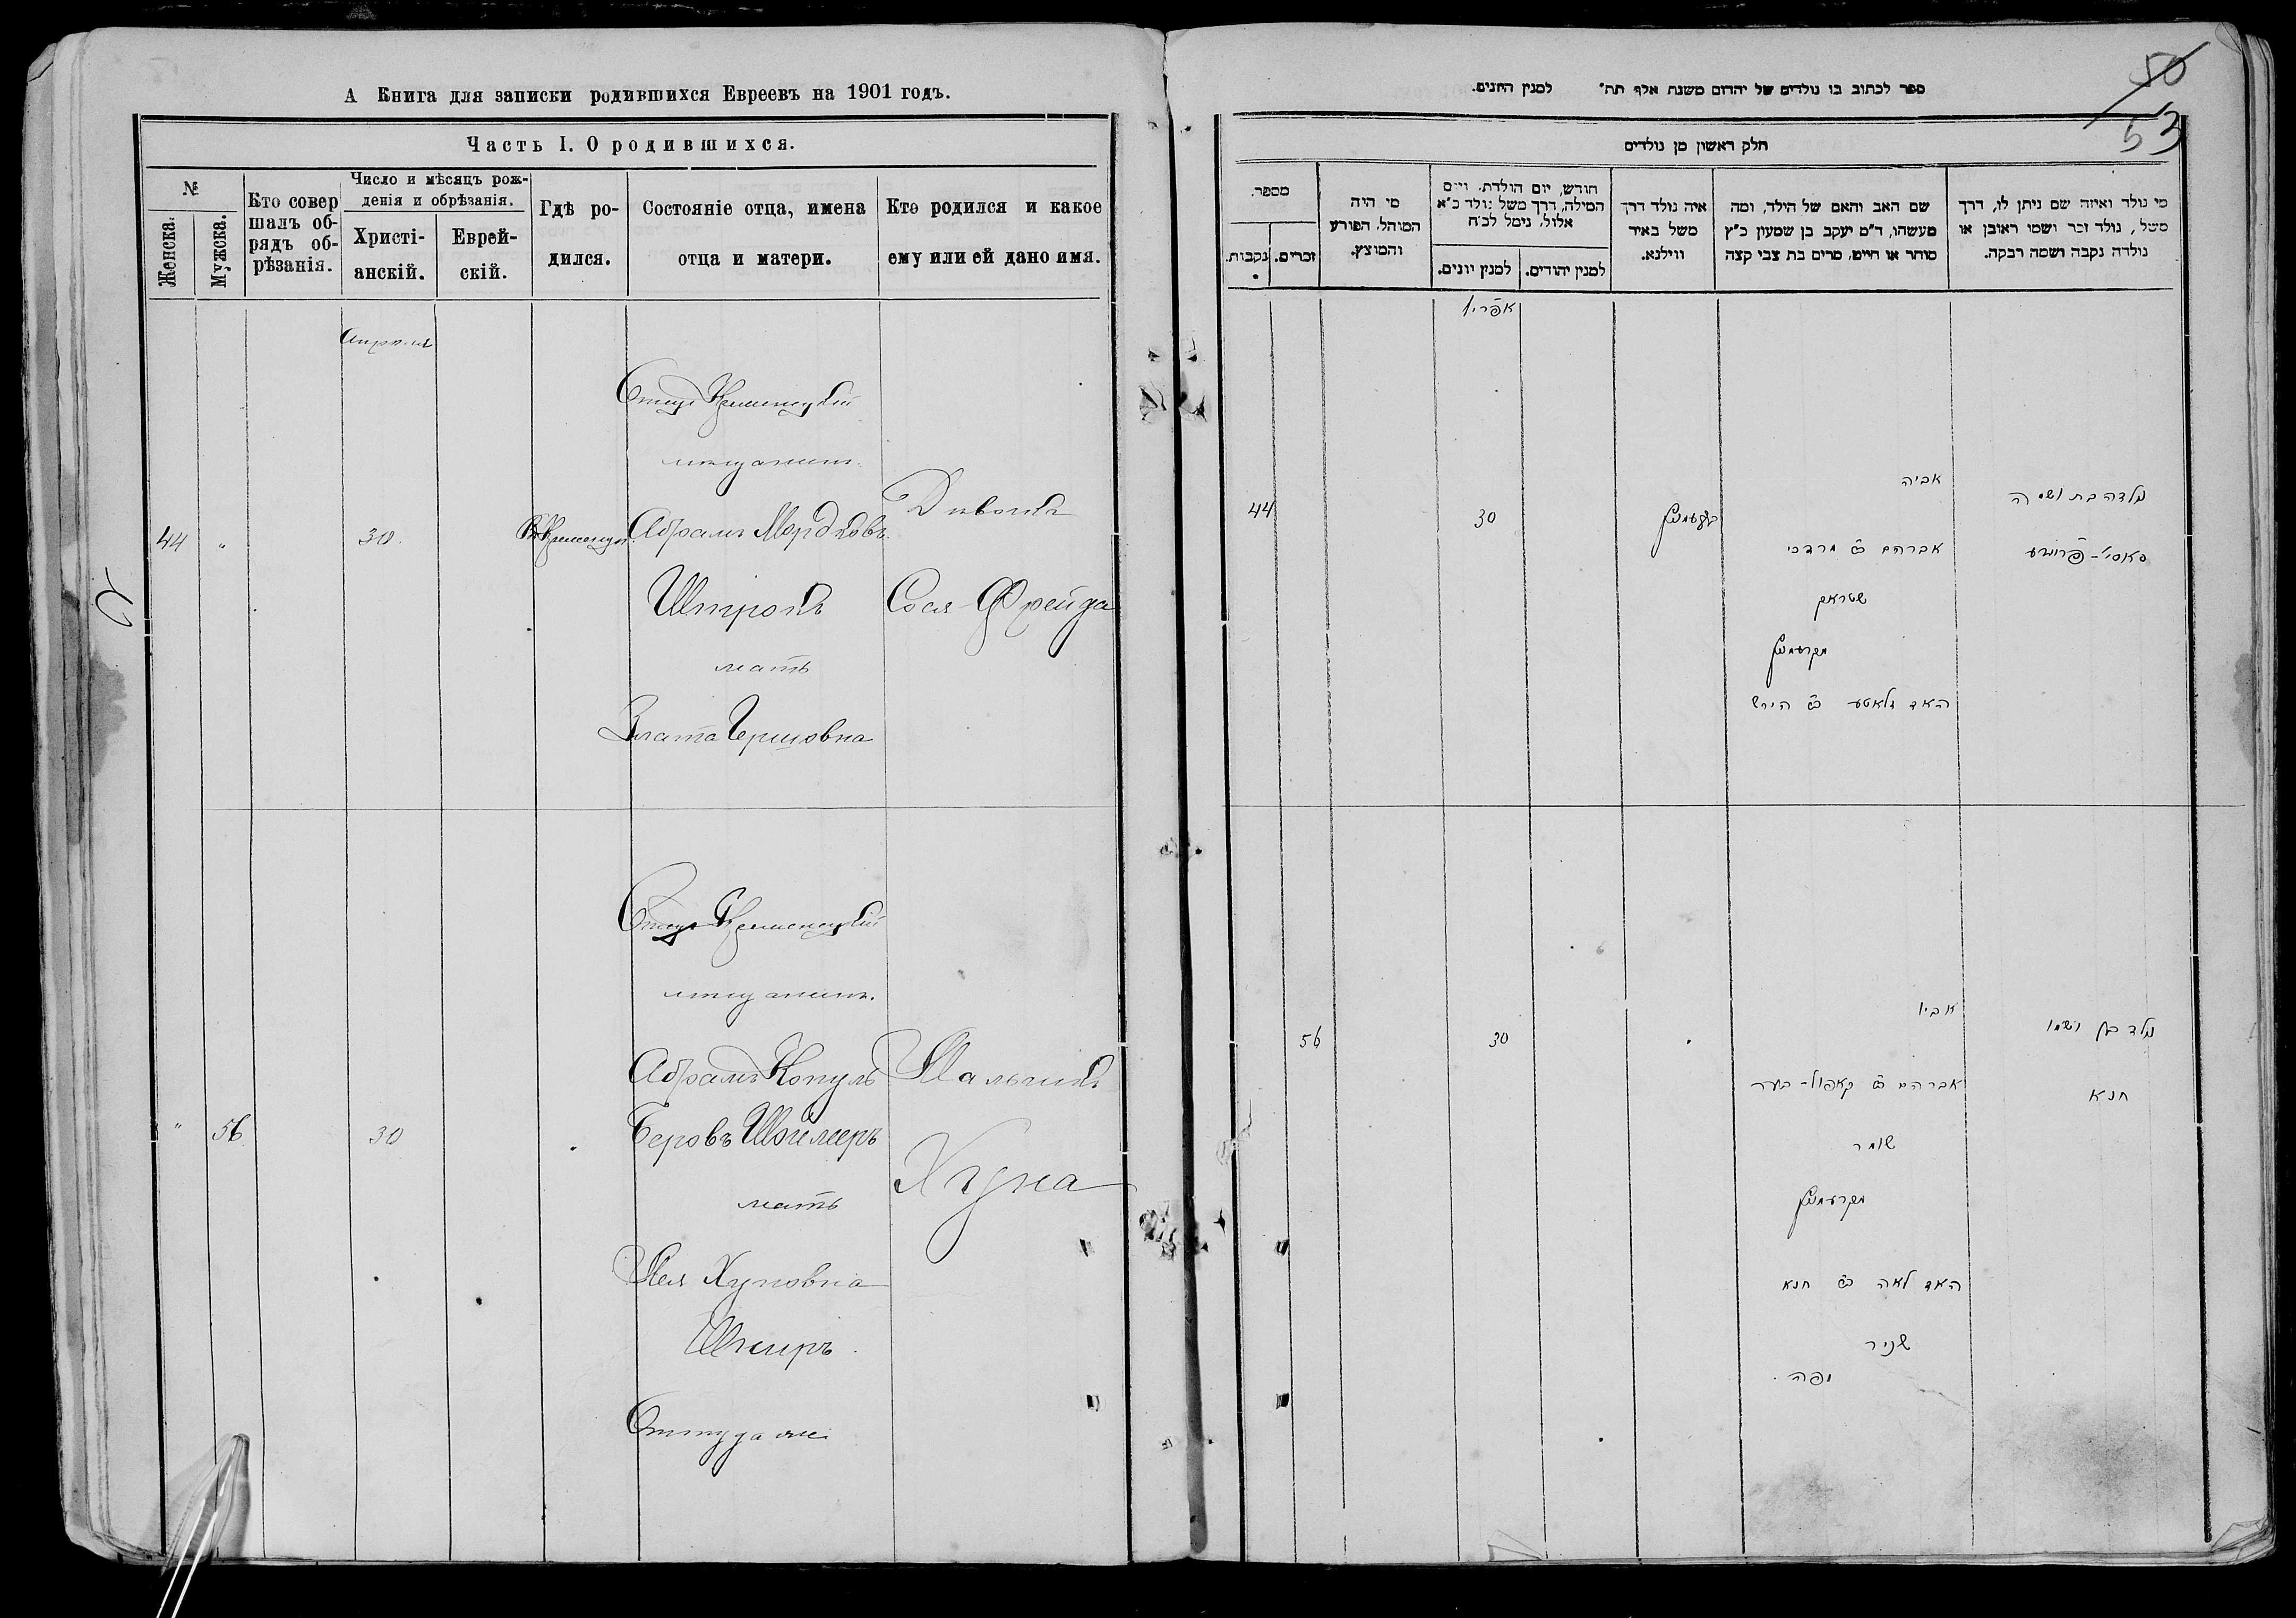 А Книга для записки родившихся Евреевъ на 1901 годъ.
Часть I. О родившихся.
№
Женска.
Мужска.
Кто совер
шалъ об-
рядъ об-
рѣзанія.
Число и мѣсяцъ рож-
денія и обрѣзанія.
Христі-
анскій.
Еврей-
скій.
Гдѣ ро-
дился.
Состояніе отца, имена
отца и матери.
Кто родился и какое
ему или ей дано имя.
Апрель
44
"
30.
Отецъ Кременецкій
мещанинъ
Абрамъ Мордковъ
Штрокъ
мать
Злата Гершовна
Дѣвочка
Сося-Фрейда
"
56
30
Отецъ Кременецкій
мещанинъ.
Абрамъ Копуль
Беровъ Шоймеръ
мать
Лея Хуновна
Шниръ
Оттуда же
Мальчикъ
Хуна
50
53
ספר לכתוב בו נולדים של יהדום משנת אלף תת״ למנין היונים.
חלק ראשון מן נולדים
מספר.
נקבות.
זכרים.
מי היה
המוהל, הפורע
והמוצץ.
חודש, יום הולדת, ויום
המילה, דרך משל נולד כ״א
אלול, נימל לכ״ח
למנין יונים.
למנין יהודים.
איה נולד דרך
משל באיר
ווילנא.
שם האב והאם של הילד, ומה
מעשהו, ד״מ יעקב בן שמעון כ״ץ
סוחר או חייט, מרים בת צבי קצה
מי נולד ואיזה שם ניתן לו, דרך
משל, נולד זכר ושמו ראובן או
נולדה נקבה ושמה רבקה.
אפריל
44
30
אביה
אברהם ב׳ מרדכי
שטראק
האם זלאטע ב׳ הירש
נולדה בת ושמה
סאסי׳-פריידע
56
30
אביו
אברהם ב׳ קאפול-בער
שומר
האם לאה ב׳ חנא
שניר
ופה
נולד בן ושמו
חנא